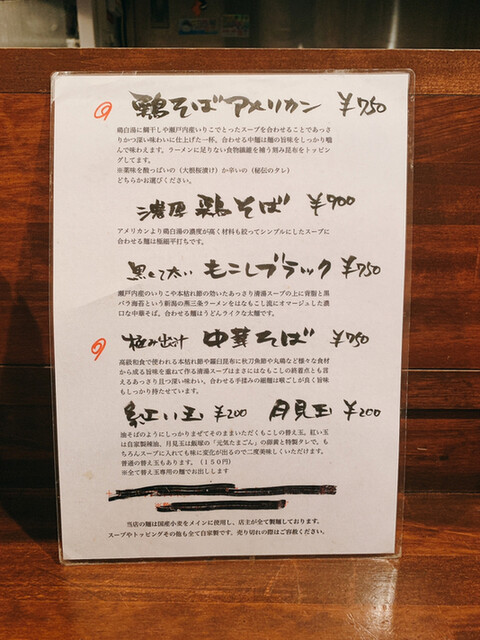 鶏そばアメリカン ¥750
鶏白湯に鯛干しや瀬戸内産いりこでとったスープを合わせることであっさ
りかつ深い味わいに仕上げた一杯。合わせる中麺は麺の旨味をしっかり噛
んで味わえます。ラーメンに足りない食物繊維を補う刻み昆布をトッピン
グしてます。
※薬味を酸っぱいの(大根桜漬け)か辛いの(秘伝のタレ)
どちらかお選びください。
濃厚 鶏そば ¥900
アメリカンより鶏白湯の濃度が高く材料も絞ってシンプルにしたスープに
合わせる麺は極細平打ちです。
黒くて太い もこしブラック ¥750
瀬戸内産のいりこや本枯れ節の効いたあっさり清湯スープの上に背脂と黒
バラ海苔という新潟の燕三条ラーメンをはなもこし流にオマージュした濃
口な中華そば。合わせる麺はうどんライクな太麺です。
極み出汁 中華そば ¥750
高級和食で使われる本枯れ節や羅臼昆布に秋刀魚節や丸鶏など様々な食材
から成る旨味を重ねて作る清湯スープはまさにはなもこしの終着点とも言
えるあっさり且つ深い味わい。合わせる手揉みの細麺は喉ごしが良く旨味
もしっかり持たせています。
紅い玉 ¥200 月見玉 ¥200
油そばのようにしっかりまぜてそのままいただくもこしの替え玉。紅い玉
は自家製辣油、月見玉は飯塚の「元気たまごん」の卵黄と特製タレで。も
ちろんスープに入れても味に変化が出るので二度美味しくいただけます。
普通の替え玉もあります。(150円)
※全て替え玉専用の麺でお出しします
当店の麺は国産小麦をメインに使用し、店主が全て製麺しております。
スープやトッピングその他も全て自家製です。売り切れの際はご容赦ください。